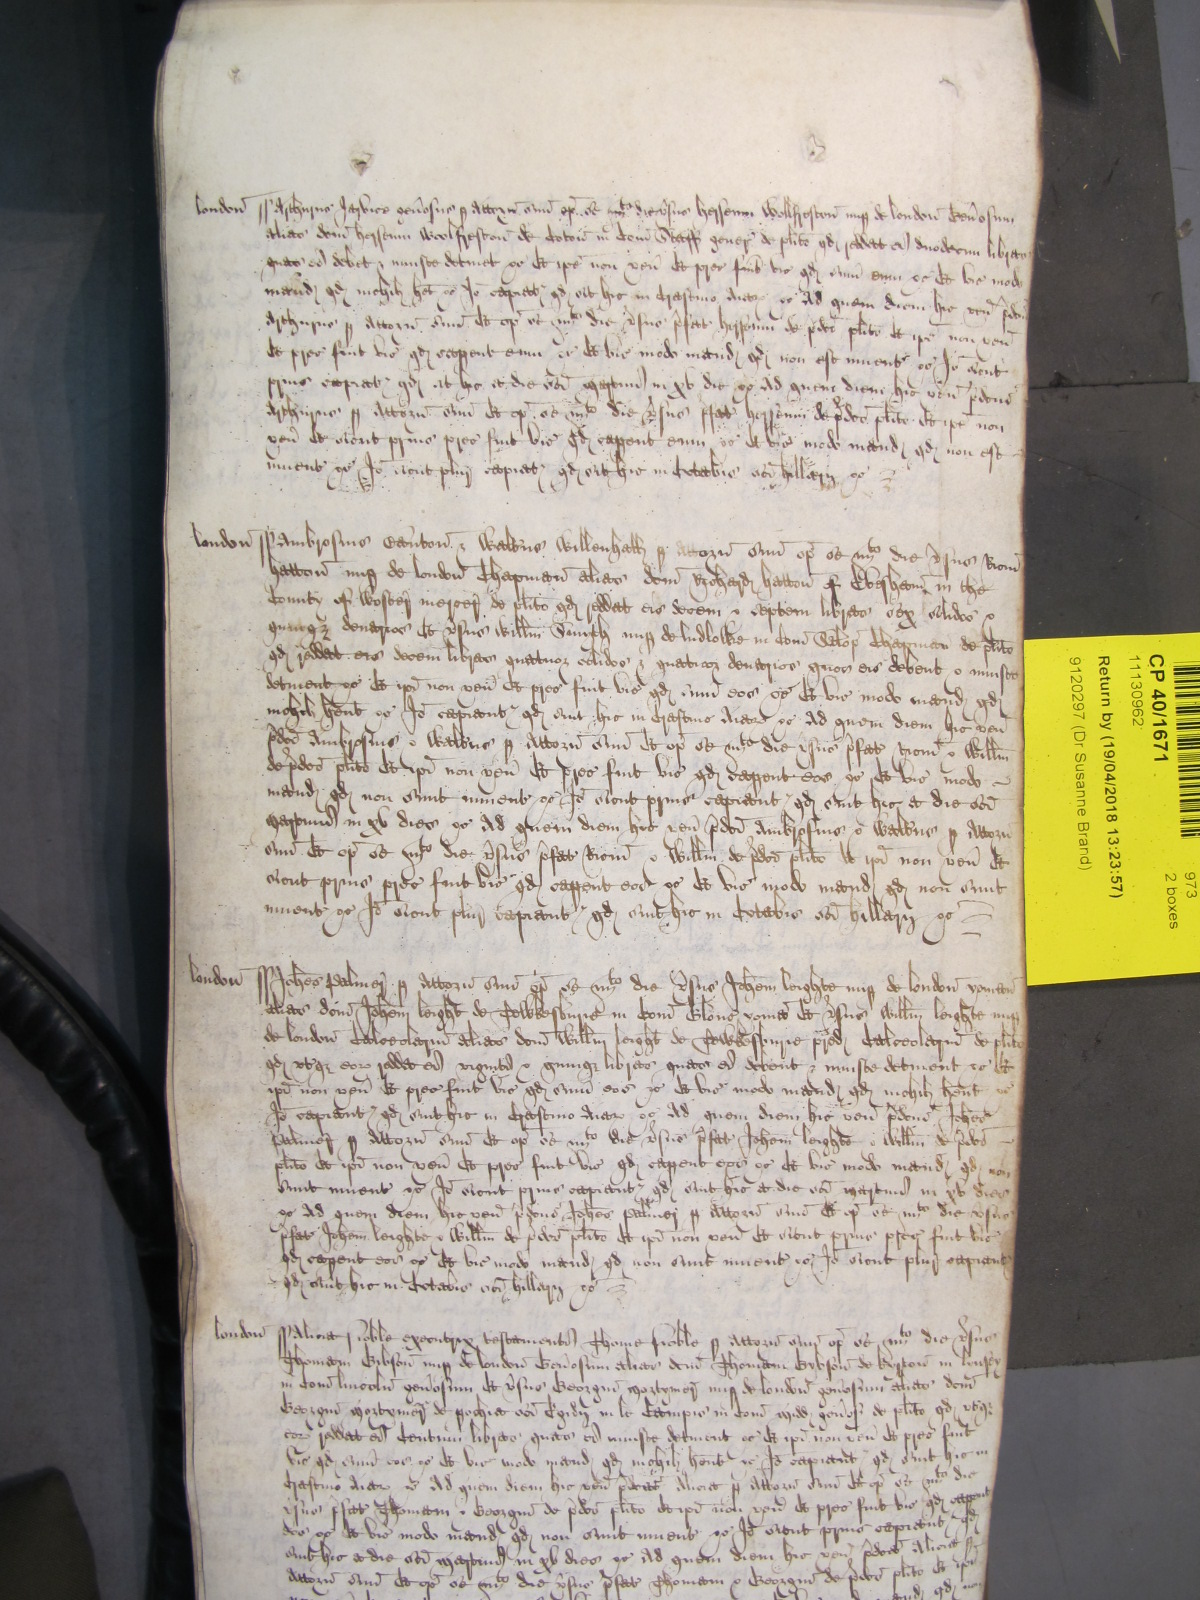 london ss Arthurus Jarvice gen'osus p Attorn suu op se iiijto die v'sus hersenn Wolfreston nup de london Gen'osum
alias dcm hersenn Woolfreston de in Com Staff gener de plito qd reddat ei duodecim libras
quas ei debet & iniuste detinet &c Et ipe non ven Et prec fuit vic qd sum eum &c Et vic modo
mand qd nichil het &c Io capiat qd sit hic in Crastino Aiar &c Ad quem diem hic ven pdcus
Arthurus p Attorn suu Et op se iiijto die v'sus pfat hersenn de pdco plito Et ipe non ven
Et prec fuit vic qd caperent eum &c Et vic modo mand qd non est invent &c Io sicut
prius capiat qd sit hic a die sci Martini in xv dies &c Ad quem diem hic ven pdcus
Arthurus p Attorn suu Et op se iiijto die v'sus pfat hersenn de pdco plito Et ipe non
ven Et sicut prius prec fuit vic qd caperent eum &c Et vic modo mand qd non est
invent &c Io sicut plur capiat qd sit hic in Octabis sci hillarij &c
london ss Ambrosius & Walterus Willenhall p Attorn suu op se iiijto die v'sus Ricum
hatton nup de london Chapman alias dcm Richard hatton of Evesham in the
County of Woster mercer de plito qd reddat eis decem & septem libras sex solidos &
quinqz denarios Et v'sus Willm Smyth nup de ludlowe in Com Salop Chapman de plito
qd reddat eis decem libras quatuor solidos & quatuor denarios quos eis debent & iniuste
detinent &c Et ipi non ven Et prec fuit vic qd sum eos &c Et vic modo mand qd
nichil hent &c Io capiant qd sint hic in Crastino Aiar &c Ad quem diem hic ven
pdci Ambrosius & Walterus p Attorn suu Et op se iiijto die v'sus pfat Ricum & Willm
de pdco plito Et ipi non ven Et prec fuit vic qd caperent eos &c Et vic modo
mand qd non sunt invent &c Io sicut prius capiant qd sint hic a die sci
Martini in xv dies &c Ad quem diem hic ven pdci Ambrosius & Walterus p Attorn
suu Et op se iiijto die v'sus pfat Ricum & Willm de pdco plito Et ipi non ven Et
sicut prius prec fuit vic qd caperent eos &c Et vic modo mand qd non sunt
invent &c Io sicut plur capiant qd sint hic in Octabis sci hillarij &c
london ss Johes Palmer p Attorn suu op se iiijto die v'sus Johem leighte nup de london yoman
alias dcm Johem leight de Tewkesburie in Com Glouc yoman Et v'sus Willm leighte nup
de london Calceolarium alias dcm Willm leight de Tewkesburie pred Calceolarium de plito
qd utqz eor reddat ei viginti & quinqz libras quas ei debent & iniuste detinent &c Et
ipi non ven Et prec fuit vic qd sum eos &c Et vic modo mand qd nichil hent &c
Io capiant qd sint hic in Crastino Aiar &c Ad quem diem hic ven pdcus Johes
Palmer p Attorn suu Et op se iiijto die v'sus pfat Johem leighte & Willm de pdco
plito Et ipi non ven Et prec fuit vic qd caperent eos &c Et vic modo mand qd non
sunt invent &c Io sicut prius capiant qd sint hic a die sci Martini in xv dies
&c Ad quem diem hic ven pdcus Johes Palmer p Attorn suu Et op se iiijto die v'sus
pfat Johem leighte & Willm de pdco plito Et ipi non ven Et sicut prius prec fuit vic
qd caperent eos &c Et vic modo mand qd non sunt invent &c Io sicut plur capiant
qd sint hic in Octabis sci hillarij &c
london ss Alicia executrix testamenti Thome p Attorn suu op se iiijto die v'sus
Thomam Gibson nup de london Gen'osum alias dcm Thomam Gybson de in
in Com lincoln gen'osum Et v'sus Georgium Mortymer nup de london gen'osum alias dcm
Georgium Mortymer de pochia sci Egidij in le Campis in Com Midd gen'os de plito qd utqz
eor reddat ei Centum libras quas ei iniuste detinent &c Et ipi non ven Et prec fuit
vic qd sum eos &c Et vic modo mand qd nichil hent &c Io capiant qd sint hic in
Crastino Aiar &c Ad quem diem hic ven pdicta Alicia p Attorn suu Et op se iiijto die
v'sus pfat Thomam & Georgium de pdco plito Et ipi non ven Et prec fuit vic qd caperent
eos &c Et vic modo mand qd non sunt invent &c Io sicut prius capiant qd
sint hic a die sci Martini in xv dies &c Ad quem diem hic ven pdicta Alicia p
Attorn suu Et op se iiijto die v'sus pfat Thomam & Georgium de pdco plito Et ipi
CP 40/1671
11130962
Return by (19/04/2018 13:23:57)
9120297 (Dr Susanne Brand)
973
2 boxes